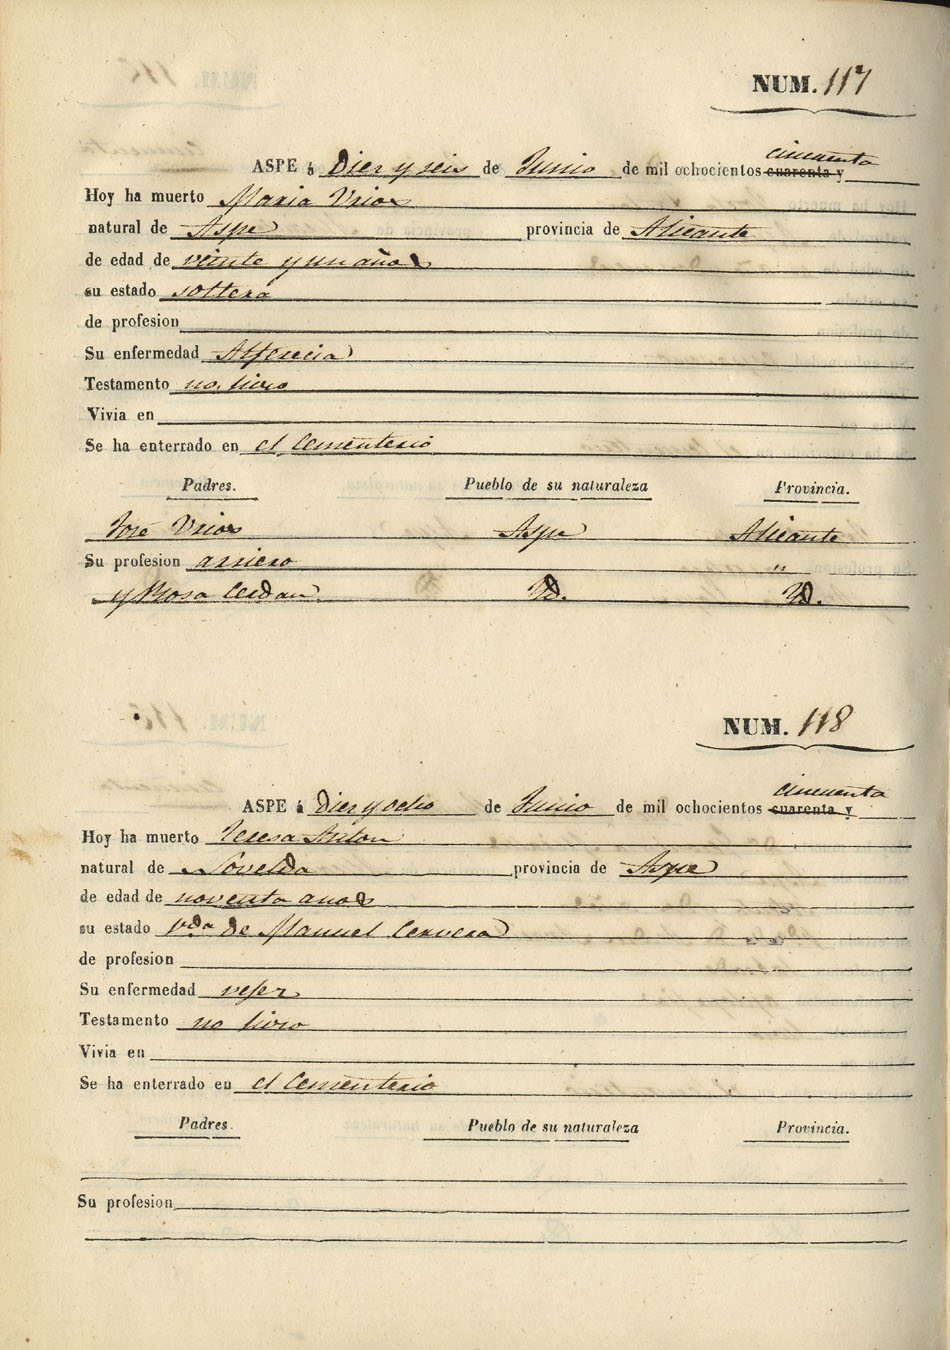 NUM. 117
cincuenta
ASPE á Diez y seis de Junio de mil ochocientos cuarenta y
Hoy ha muerto Maria Urios
natural de Aspe provincia de Alicante
de edad de veinte y un años
su estado soltera
de profesion
Su enfermedad Alferecia
Testamento no hizo
Vivia en
Se ha enterrado en el Cementerio
Padres. Pueblo de su naturaleza Provincia.
José Urios Aspe Alicante
Su profesion arriero "
y Rosa Cerdan Yd. Yd.
NUM. 118
cincuenta
ASPE á Diez y ocho de Junio de mil ochocientos cuarenta y
Hoy ha muerto Teresa Anton
natural de Novelda provincia de Aspe
de edad de noventa anos
su estado vda de Manuel Cervera
de profesion
Su enfermedad vejez
Testamento no hizo
Vivia en
Se ha enterrado en el Cementerio
Padres. Pueblo de su naturaleza Provincia.
Su profesion